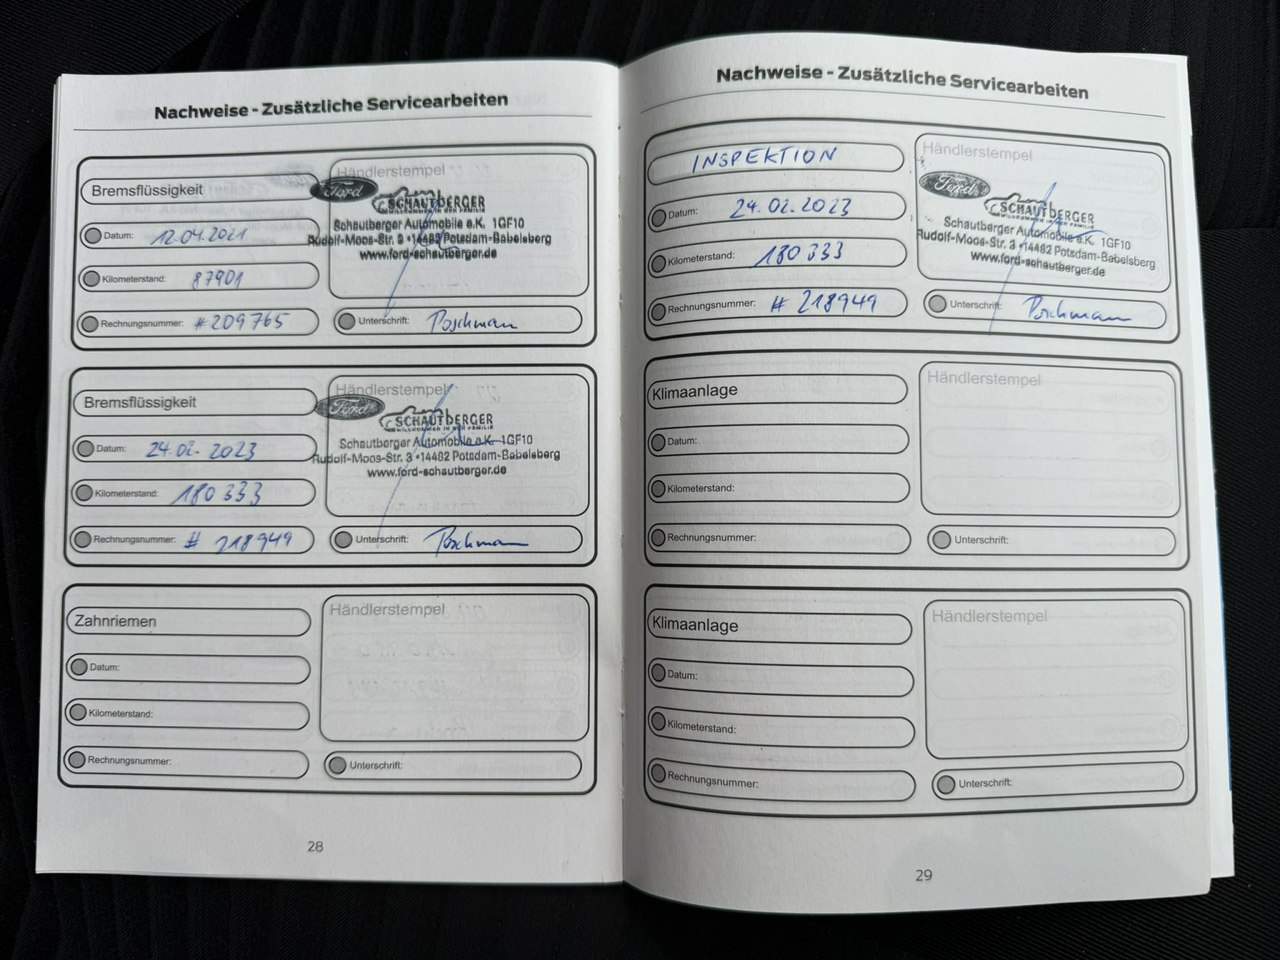 Nachweise - Zusätzliche Servicearbeiten
Bremsflüssigkeit
Datum: 12.04.2021
Kilometerstand: 87901
Rechnungsnummer: #209765
Händlerstempel
Ford
SCHAUTBERGER
WILLKOMMEN IN DER FAMILIE
Schautberger Automobile e.K. 1GF10
Rudolf-Moos-Str. 3 • 14482 Potsdam-Babelsberg
www.ford-schautberger.de
Unterschrift: Poschmann
Bremsflüssigkeit
Datum: 24.02.2023
Kilometerstand: 180 333
Rechnungsnummer: # 218949
Händlerstempel
Ford
SCHAUTBERGER
WILLKOMMEN IN DER FAMILIE
Schautberger Automobile e.K. 1GF10
Rudolf-Moos-Str. 3 • 14482 Potsdam-Babelsberg
www.ford-schautberger.de
Unterschrift: Poschmann
Zahnriemen
Datum:
Kilometerstand:
Rechnungsnummer:
Händlerstempel
Unterschrift:
28
Nachweise - Zusätzliche Servicearbeiten
INSPEKTION
Datum: 24.02.2023
Kilometerstand: 180 333
Rechnungsnummer: # 218949
Händlerstempel
Ford
SCHAUTBERGER
WILLKOMMEN IN DER FAMILIE
Schautberger Automobile e.K. 1GF10
Rudolf-Moos-Str. 3 • 14482 Potsdam-Babelsberg
www.ford-schautberger.de
Unterschrift: Poschmann
Klimaanlage
Datum:
Kilometerstand:
Rechnungsnummer:
Händlerstempel
Unterschrift:
Klimaanlage
Datum:
Kilometerstand:
Rechnungsnummer:
Händlerstempel
Unterschrift:
29